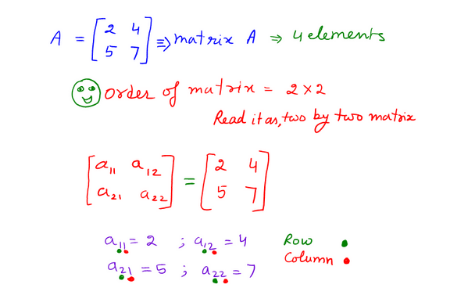 A = [2 4
5 7] ⇒ matrix A ⇒ 4 elements
order of matrix = 2×2
Read it as, two by two matrix
[a₁₁ a₁₂
a₂₁ a₂₂] = [2 4
5 7]
a₁₁ = 2 ; a₁₂ = 4 Row
a₂₁ = 5 ; a₂₂ = 7 Column